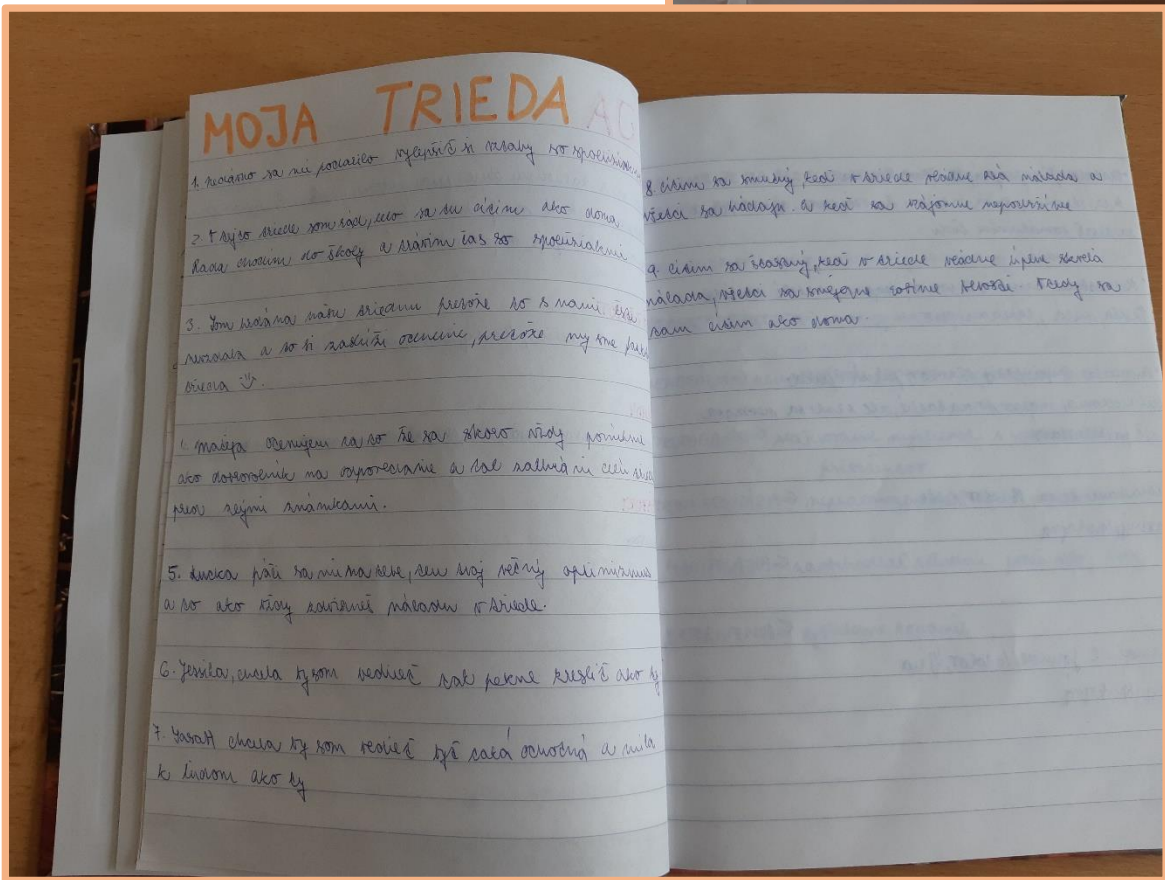 MOJA TRIEDA
1. nedávno sa mi podarilo vylepšiť si vzťahy so
2. V tejto triede som rád, lebo sa tu cítim ako doma
Rada chodím do školy a trávim čas so spolužiakmi
3. Som na našu triednu pretože to s nami ešte
nevzdala a to si zaslúži ocenenie, pretože my sme
.
Mateja oceňujem za to že sa skoro vždy
ako dobrovoľník na odpovedanie a tak
pred zlými známkami.
5. Lucka páči sa mi na tebe, ten tvoj večný optimizmus
a to ako vždy náladu v triede.
6. Jessika, chcela by som vedieť tak pekne kresliť ako ty
7. Sarah chcela by som vedieť byť taká ochotná a milá
k ľudom ako ty
8. cítim sa smutný, keď v triede vládne zlá nálada a
všetci sa hádajú. a keď sa nájomne nepodržíme
9. cítim sa šťastný, keď v triede vládne úplne skvelá
nálada, všetci sa smejeme vtedy sa
tam cítim ako doma.